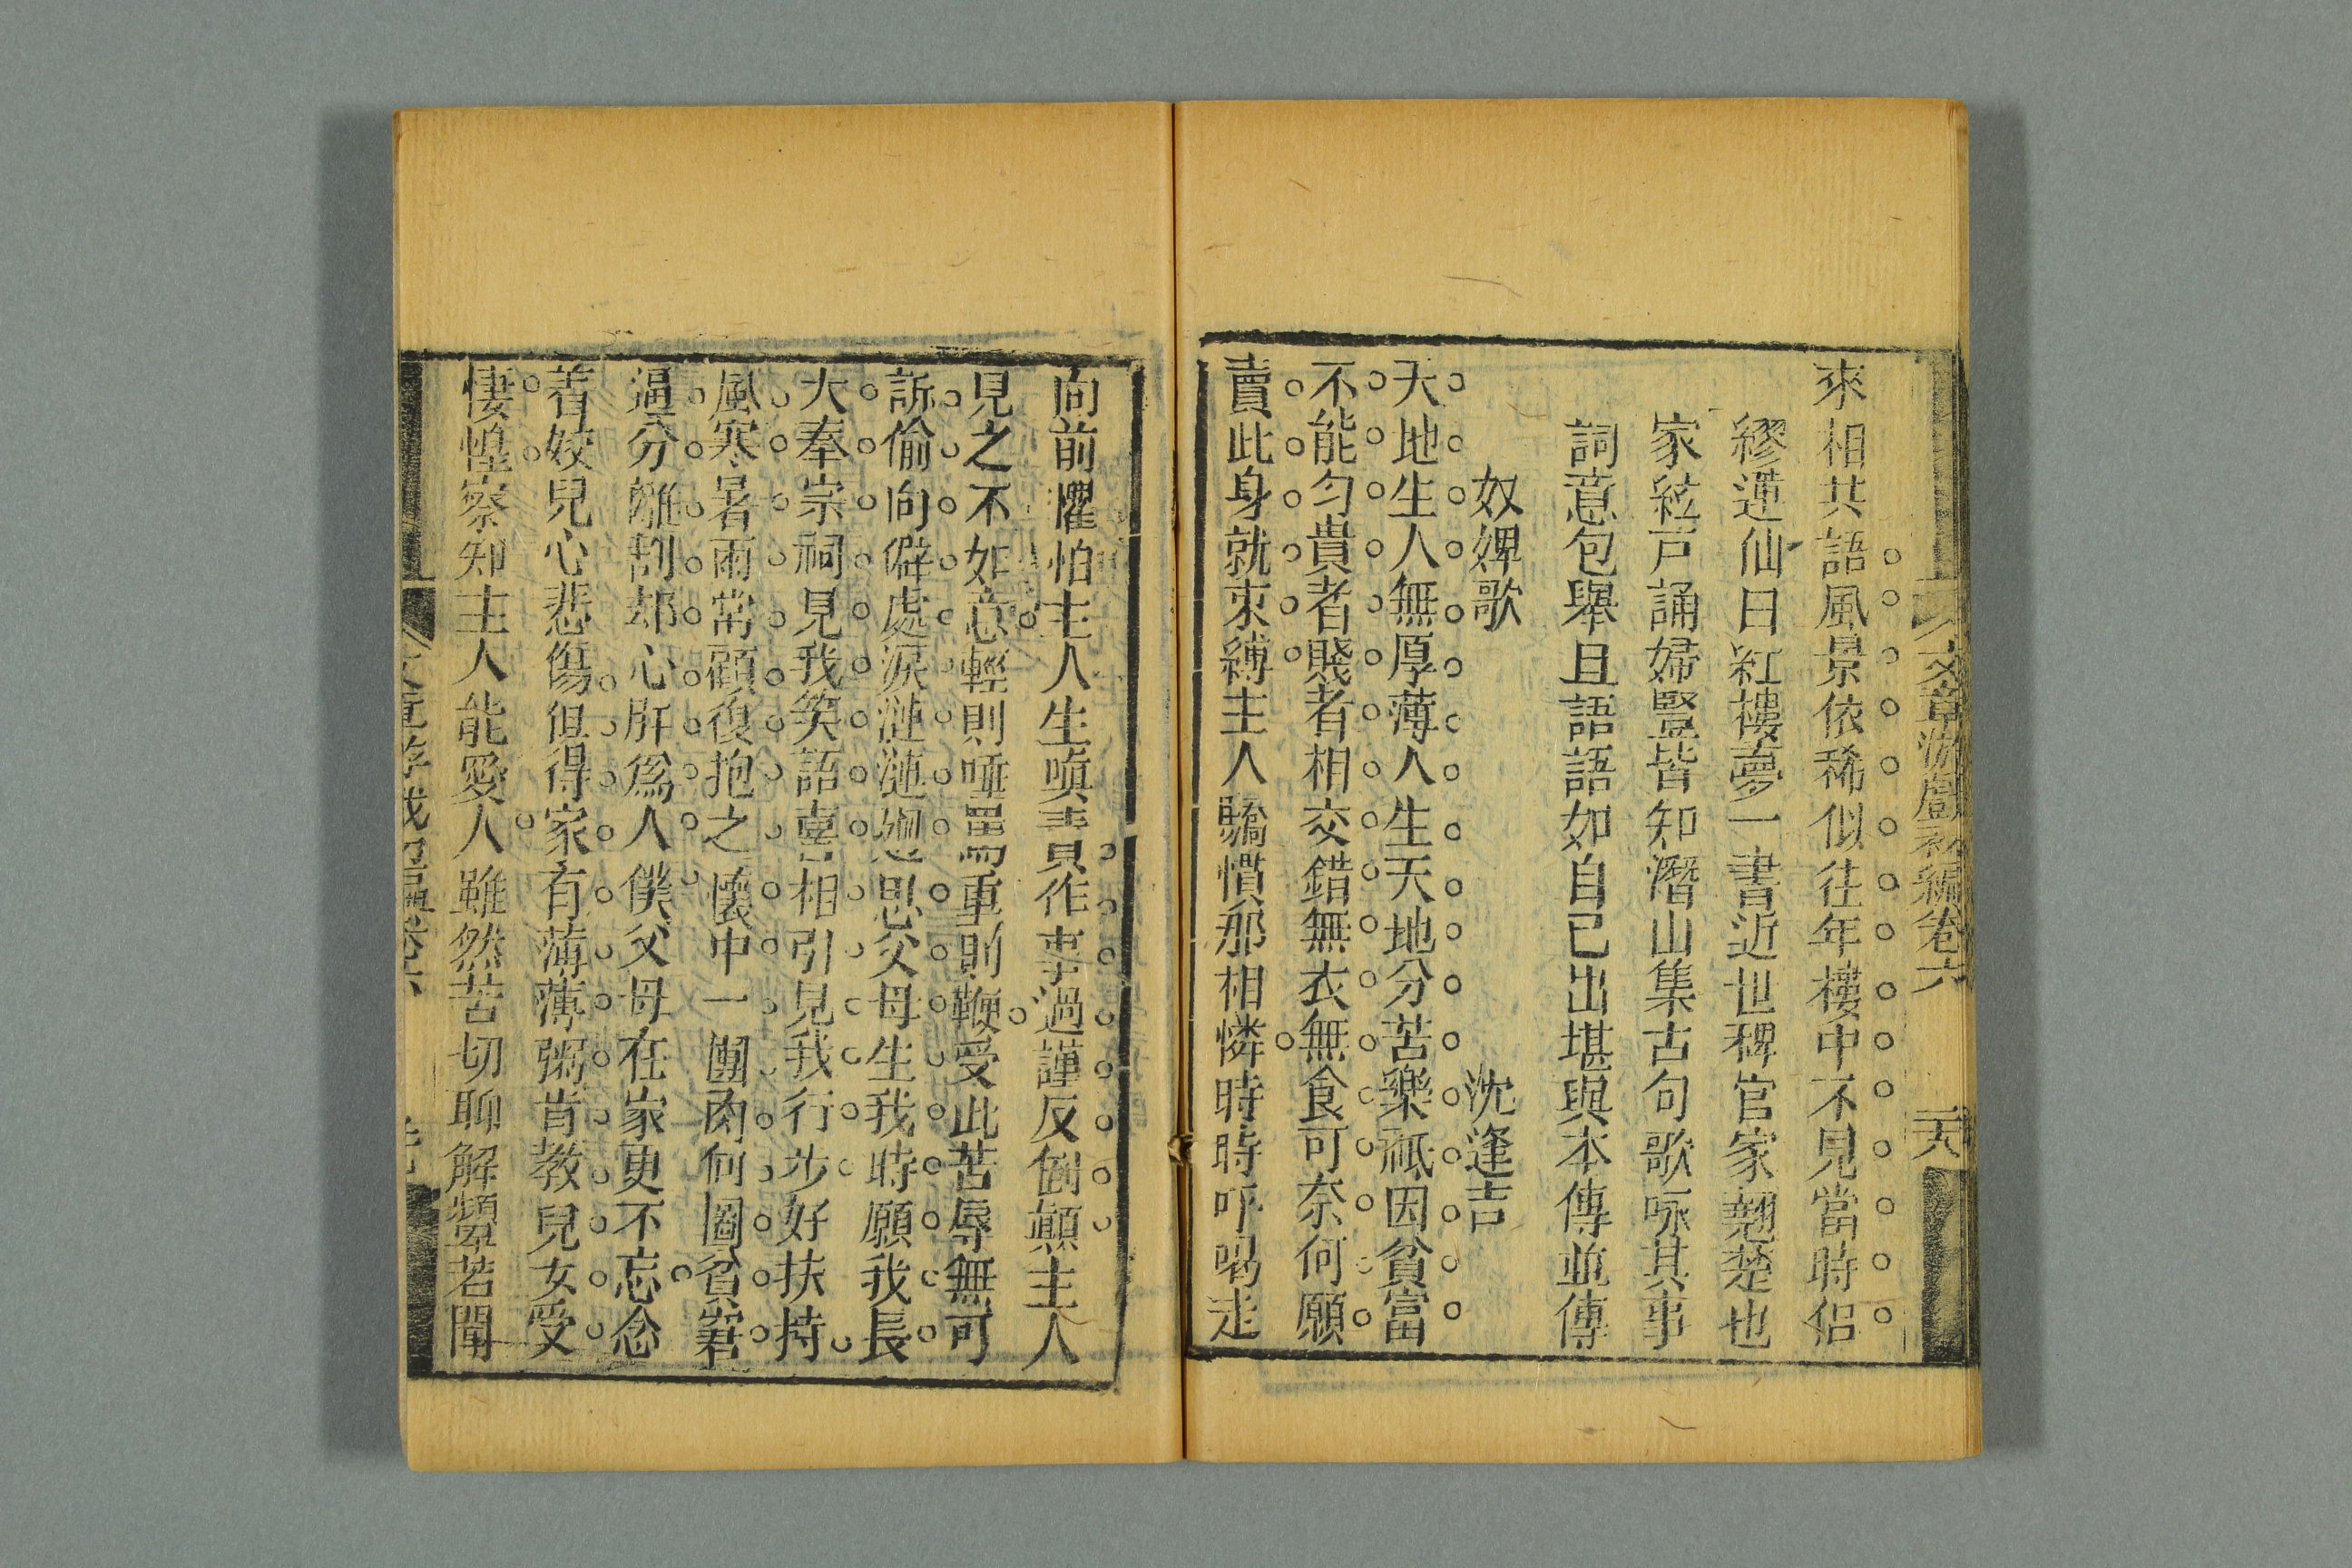 文章游戲初編卷六
二六
來相共語風景依稀似往年樓中不見當時侶
繆蓮仙曰紅樓夢一書近世稗官家翹楚也
家絃戸誦婦豎皆知潛山集古句歌咏其事
詞意包舉且語語如自已出堪與本傳並傳
奴婢歌 沈逢吉
天地生人無厚薄人生天地分苦樂祗因貧富
不能勻貴者賤者相交錯無衣無食可奈何願
賣此身就束縛主人驕慣那相憐時時呼喝走
向前懼怕主人生嗔責作事過謹反倒顛主人
見之不如意輕則唾罵重則鞭受此苦辱無可
訴偷向僻處淚漣漣迴思父母生我時願我長
大奉宗祠見我笑語喜相引見我行步好扶持
風寒暑雨常顧復抱之懷中一團肉何圖貧窘
逼分離割却心肝爲人僕父母在家更不忘念
着姣兒心悲傷但得家有薄薄粥肯教兒女受
悽惶察知主人能愛人雖然苦切聊解顰若聞